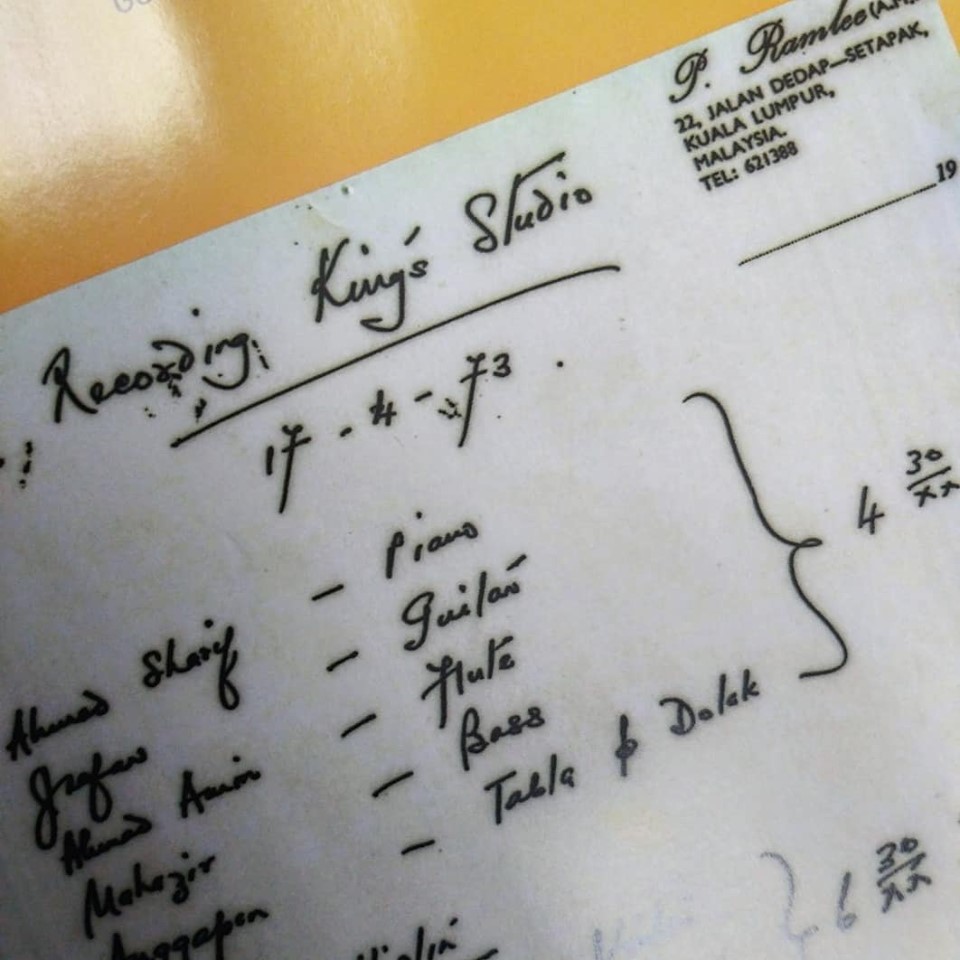 P. Ramlee (A.M.N
22, JALAN DEDAP—SETAPAK,
KUALA LUMPUR,
MALAYSIA.
TEL: 621388
19
Recording King's Studio
17 - 4 - 73.
Ahmad Sharif - Piano
Jaafar - Guitar
Ahmad Amin - Flute
Mahazir - Bass
Anggapan - Tabla & Dolak
4 30/xx
Violin
6 30/xx